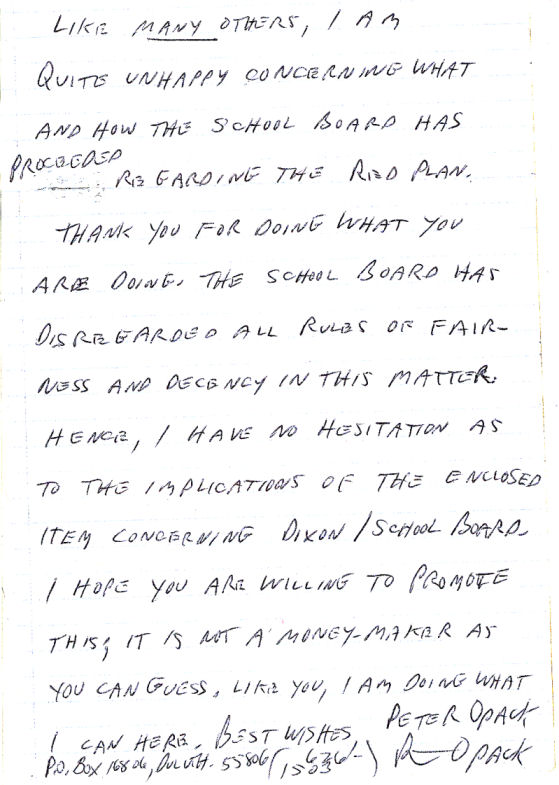 LIKE MANY OTHERS, I AM
QUITE UNHAPPY CONCERNING WHAT
AND HOW THE SCHOOL BOARD HAS
PROCEEDED
REGARDING THE RED PLAN.
THANK YOU FOR DOING WHAT YOU
ARE DOING. THE SCHOOL BOARD HAS
DISREGARDED ALL RULES OF FAIR-
NESS AND DECENCY IN THIS MATTER.
HENCE, I HAVE NO HESITATION AS
TO THE IMPLICATIONS OF THE ENCLOSED
ITEM CONCERNING DIXON/SCHOOL BOARD.
I HOPE YOU ARE WILLING TO PROMOTE
THIS; IT IS NOT A MONEY-MAKER AS
YOU CAN GUESS. LIKE YOU, I AM DOING WHAT
I CAN HERE. BEST WISHES PETER OPACK
P.O. BOX 16806, DULUTH. 55806 (626-1503) P OPACK